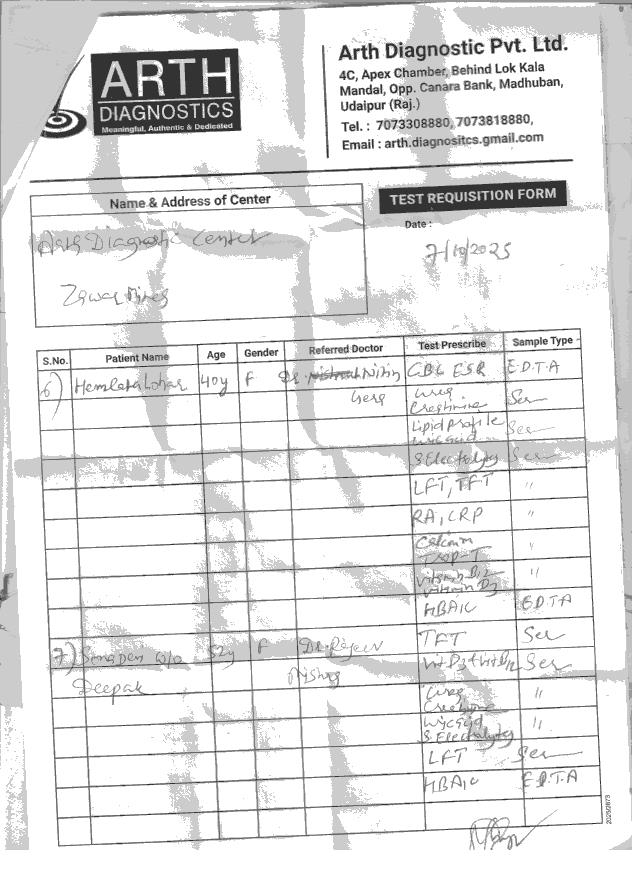 ARTH
DIAGNOSTICS
Meaningful, Authentic & Dedicated
Arth Diagnostic Pvt. Ltd.
4C, Apex Chamber, Behind Lok Kala
Mandal, Opp. Canara Bank, Madhuban,
Udaipur (Raj.)
Tel. : 7073308880, 7073818880,
Email : arth.diagnositcs.gmail.com
Name & Address of Center
TEST REQUISITION FORM
Arth Diagnostic Center
Date :
7/10/2025
Zawar Mines
S.No. Patient Name Age Gender Referred Doctor Test Prescribe Sample Type
6) Hemlata Lohar 40y F Dr. Nitin CBC ESR E.D.T.A
Ser
Lipid profile Ser
S. Electrolytes Ser
LFT, TFT "
RA, CRP "
Calcium
Trop-T "
Vitamin B12 "
Vitamin D3
HBA1C E.D.T.A
7) W/o 52y F Dr. Rajeev TFT Ser
Deepak Vit D3 + Vit B12 Ser
"
S. Electrolytes "
LFT Ser
HBA1C E.D.T.A